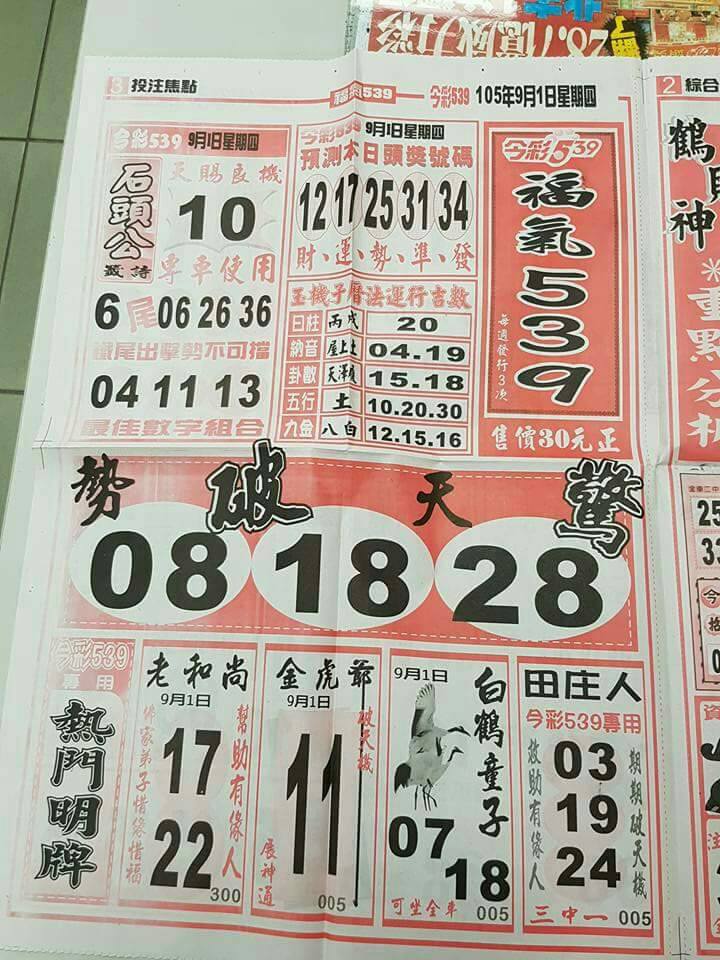 28.7億威力彩
3 投注焦點
福氣539 今彩539 105年9月1日星期四
2 綜合
今彩539 9月1日星期四
石頭公
天賜良機
10
專車使用
6尾 06 26 36
鐵尾出擊勢不可擋
04 11 13
最佳數字組合
今彩539 9月1日星期四
預測本日頭獎號碼
12 17 25 31 34
財、運、勢、準、發
玉機子曆法運行吉數
日柱 丙戌 20
納音 屋上土 04.19
卦數 天澤履 15.18
五行 土 10.20.30
九金 八白 12.15.16
今彩539
福氣539
每週發行3次
售價30元正
鶴財神
※重點分析
勢破天驚
08 18 28
今彩539
專用
熱門明牌
老和尚
9月1日
幫助有緣人
17
22
佛家弟子惜緣惜福
300
金虎爺
9月1日
破天機
11
展神通
005
9月1日
白鶴童子
07
18
可坐全車
005
田庄人
今彩539專用
期期破天機
03
19
24
救助有緣人
三中一 005